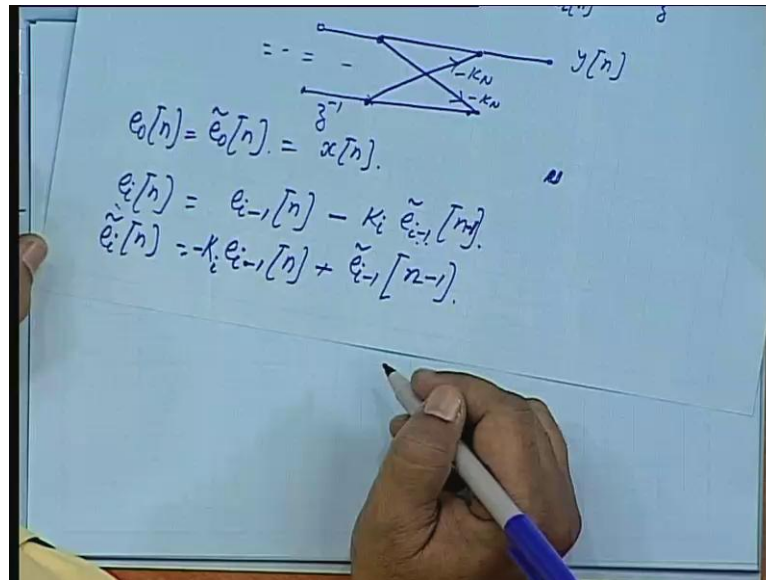 = - = - y[n]
-K_N
-K_N
z^{-1}
e_0[n] = \tilde{e}_0[n] = x[n].
e_i[n] = e_{i-1}[n] - K_i \tilde{e}_{i-1}[n-1].
\tilde{e}_i[n] = -K_i e_{i-1}[n] + \tilde{e}_{i-1}[n-1].